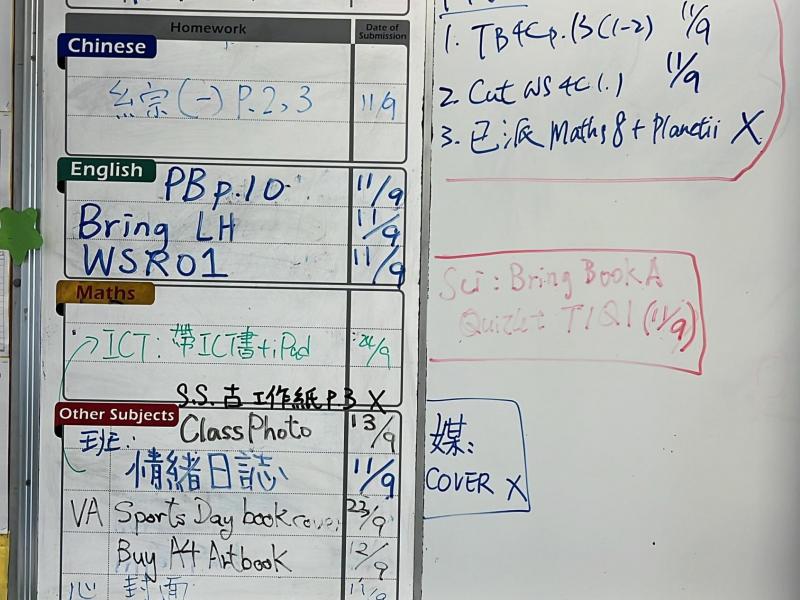 Homework Date of Submission
Chinese
(一) P.2,3 11/9
English
PB p.10 11/9
Bring LH 11/9
WSR01 11/9
Maths
ICT: 帶ICT書+iPad 24/9
S.S. 古 工作紙 P3 X
Other Subjects
班: Class Photo 13/9
情緒日誌 11/9
VA Sports Day book cover 23/9
Buy A4 Artbook 12/9
心 封面 11/9
1. TB4C p.13 (1-2) 11/9
2. Cut WS 4C 1.1 11/9
3. 已派 Maths 8 + Planetii X
Sci: Bring Book A
Quizlet T1Q1 (11/9)
媒:
COVER X